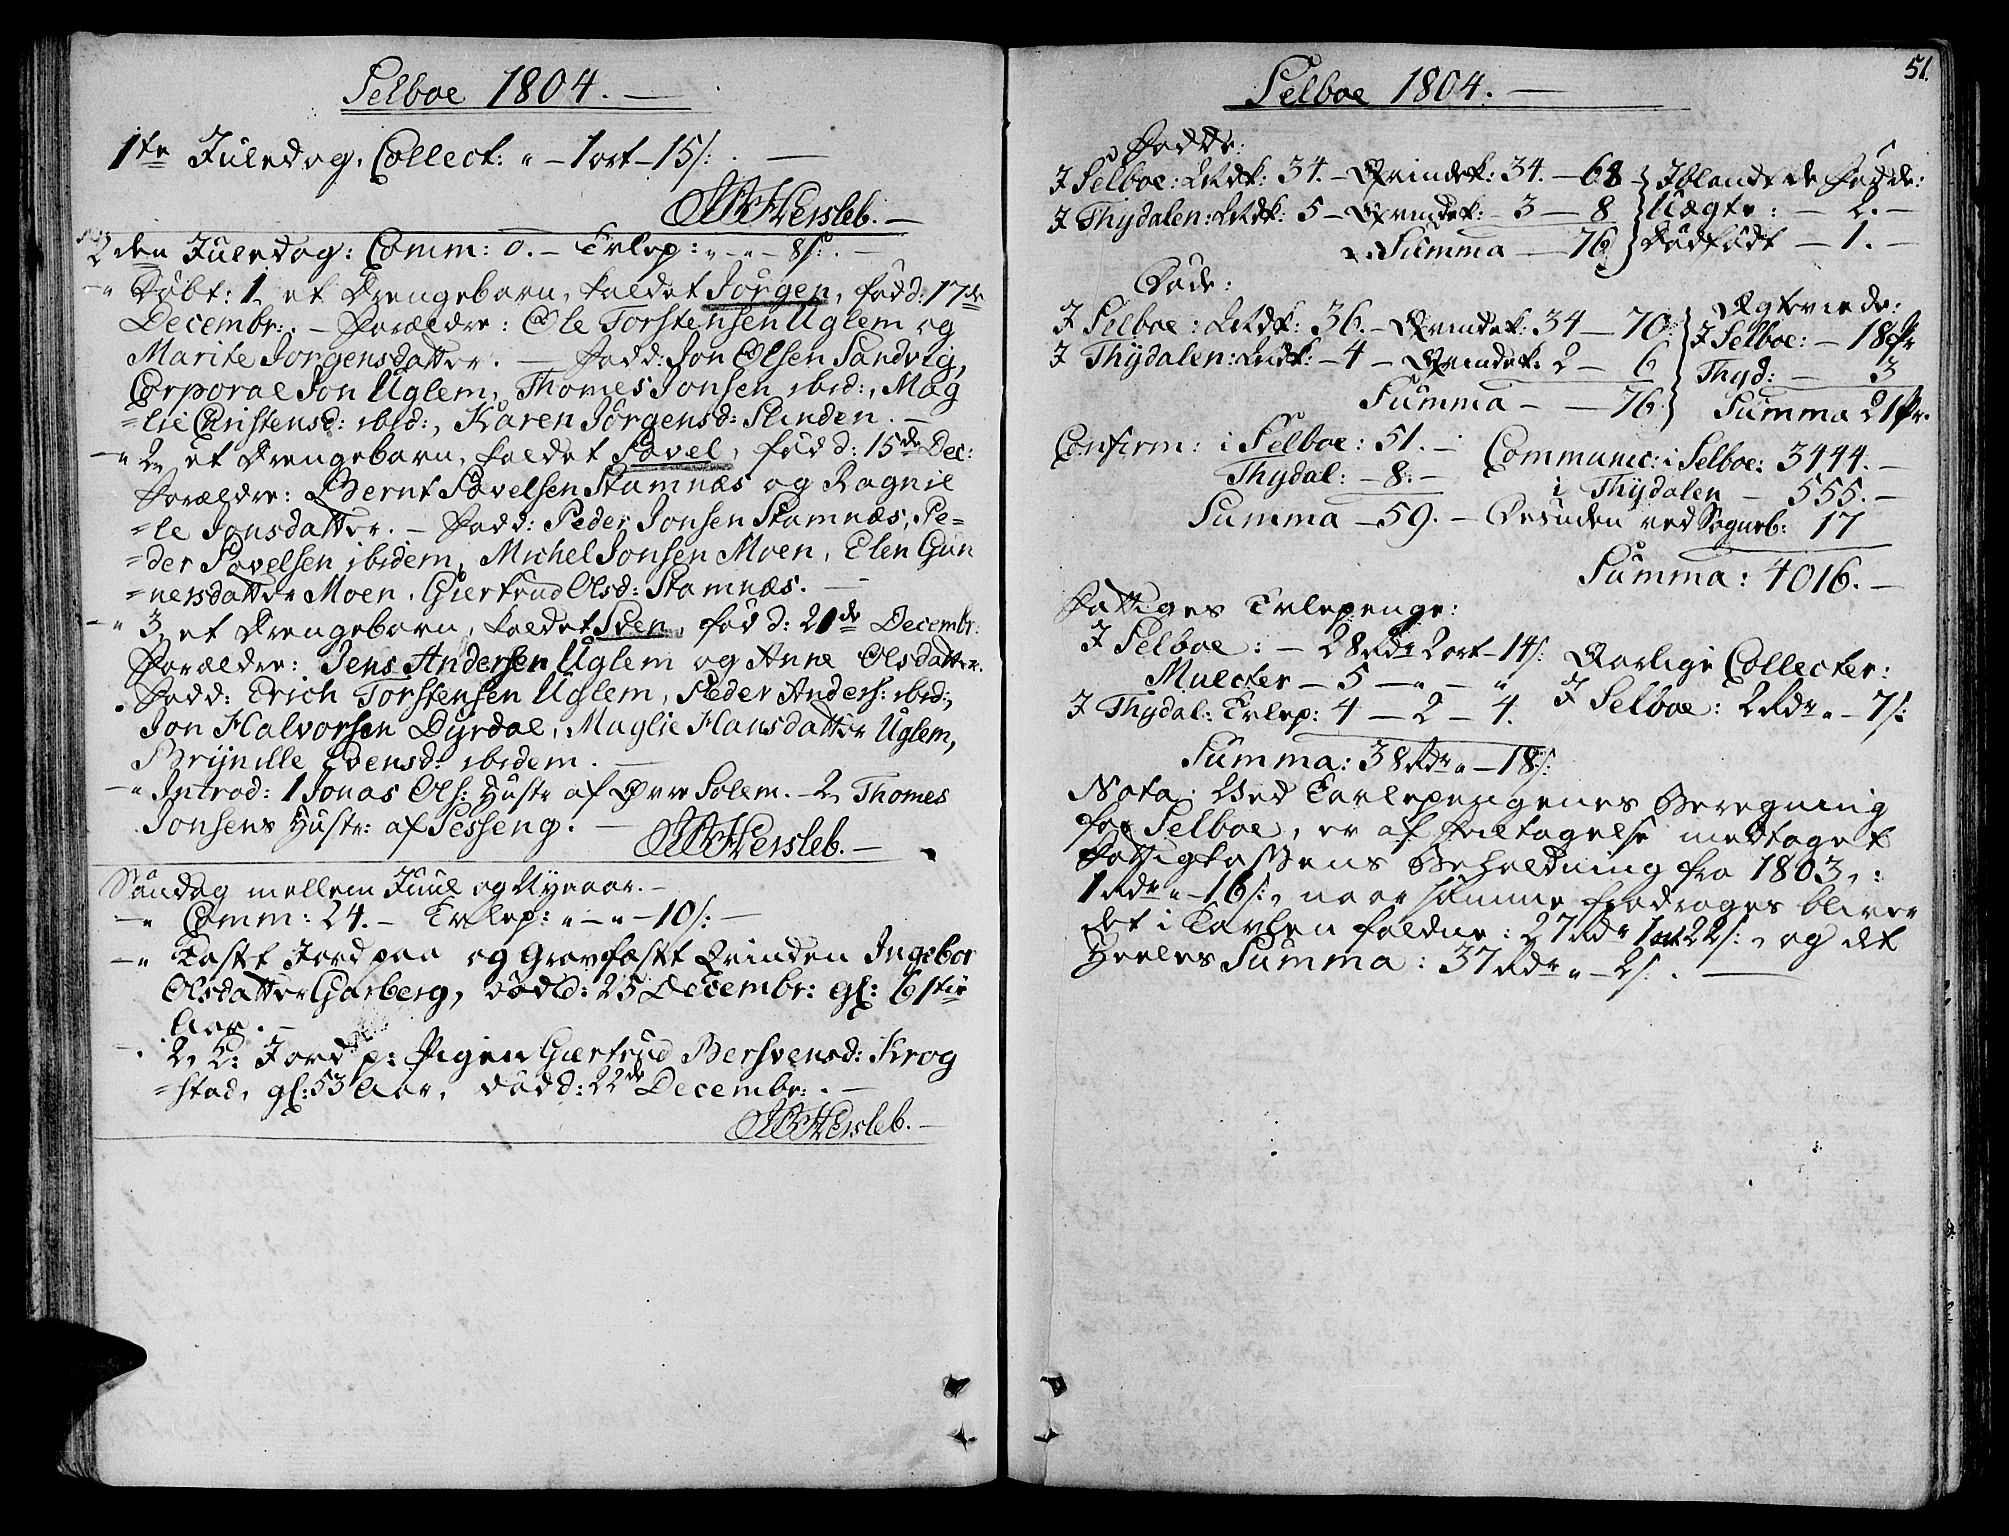 Selboe 1804. —
1te Juledag, Collect: " — 1 ort — 15 s:. —
Hersleb. —
2den Juledag: Comm: 0. — Tvlep: " — " — 8 s:. —
" Døbt: 1, et Drengebarn, kaldet Jørgen, fød d: 17de
Decembr:. — Forældre: Ole Torstensen Uglem og
Marite Jørgensdatter. — Fadd: Jon Olsen Sandvig,
Corporal Jon Uglem, Thomes Jonsen ibid:, Mag
=lie Christensd: ibid:, Karen Jørgensd: Slinden. —
— " 2, et Drengebarn, kaldet Povel, fød d: 15de Dec:
Forældre: Bernt Povelsen Stamnæs og Ragnil
=le Jonsdatter. — Fadd: Peder Jonsen Stamnæs, Pe=
=der Povelsen ibidem, Michel Jonsen Moen, Elen Gun
=nersdatter Moen, Giertrud Olsd: Stamnæs. —
— " 3, et Drengebarn, kaldet Sven, fød d: 20de Decembr.
Forældre: Jens Andersen Uglem og Anne Olsdatter.
Fadd: Erich Torstensen Uglem, Peder Anders: ibid:,
Jon Halvorsen Dyrdal, Maglie Hansdatter Uglem,
Brynille Evensd: ibidem. —
— " Introd: 1 Jonas Ols: Hustr af Øvre Solem. — 2, Thomes
Jonsens Hustr: af Sesseng. —
Hersleb. —
Søndag mellem Juul og Nyeaar. —
— " Comm: 24. — Tvlep: " — " — 10 s: —
— " Kastt Jord paa og Gravfæstt Qvinden Ingebor
Olsdatter Garberg, død d: 25 Decembr: gl: 61 tiv
Aar. —
— . 2, K: Jord p: Pigen Giertrud Bersvensd: Krog
=stad, gl: 53 Aar, død d: 22de Decembr:. —
Hersleb. —
51.
Selboe 1804. —
Fødde:
I Selboe: Mdk: 34. — Qvindek: 34. — 68
I Thydalen: Mdk: 5 — Qvindek: — 3 — 8
Summa — 76
Iblandt de Fødde:
Uægte: — 2. —
Dødfødt — 1. —
Døde:
I Selboe: Mdk: 36. — Qvindek: 34 — 70
I Thydalen: Mdk: — 4 — Qvindek: 2 — 6
Summa — — 76
Ægteviede:
I Selboe: — 18 Pr
Thyd: — 3
Summa 21 Pr.
Confirm: i Selboe: 51. —
Thydal: — 8: —
Summa — 59. —
Communic: i Selboe: 3444. —
i Thydalen — 555. —
Desuden ved Sogneb: 17
Summa: 4016. —
Fattiges Tvlepenge:
I Selboe: — 28 Rdr 2 ort — 14 s:
Muleter — 5 — " — "
I Thydal: Tvlep: 4 — 2 — 4.
Summa: 38 Rdr " — 18 s:
Aarlige Collecter:
I Selboe: 2 Rdr " — 7 s:
Nota: Ved Tavlepengenes Beregning
for Selboe, er af Feiltagelse medtaget
Fattigkassens Beholdning fra 1803, :
1 Rdr " — 16 s:, naar samme fradrages bliver
det i Tavlen faldne: 27 Rdr 1 ort 22 s:, og det
Heeles Summa: 37 Rdr " — 2 s:. —